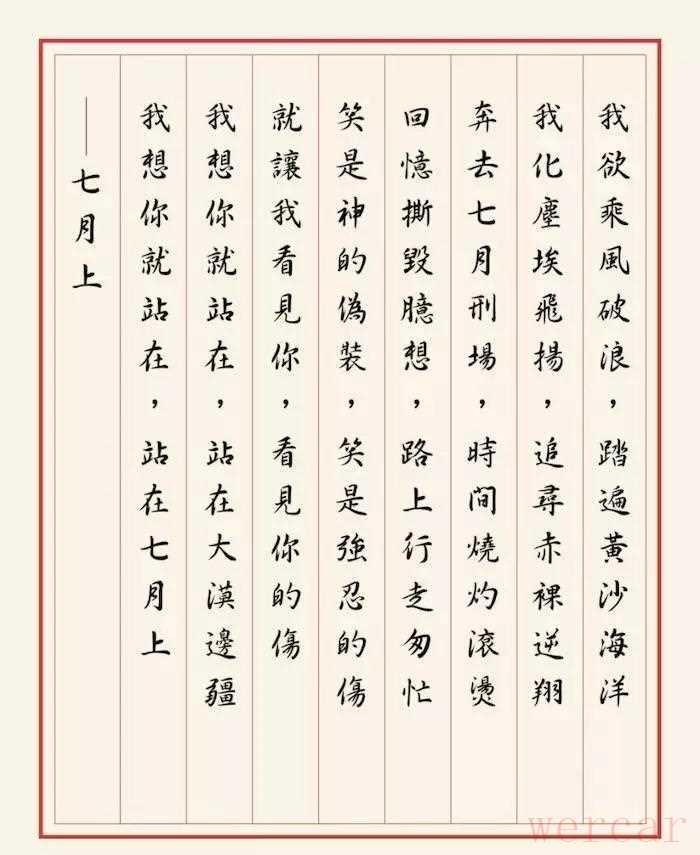 我欲乘風破浪，踏遍黃沙海洋
我化塵埃飛揚，追尋赤裸逆翔
奔去七月刑場，時間燒灼滾燙
回憶撕毀臆想，路上行走匆忙
笑是神的偽裝，笑是強忍的傷
就讓我看見你，看見你的傷
我想你就站在，站在大漠邊疆
我想你就站在，站在七月上
——七月上
wercar